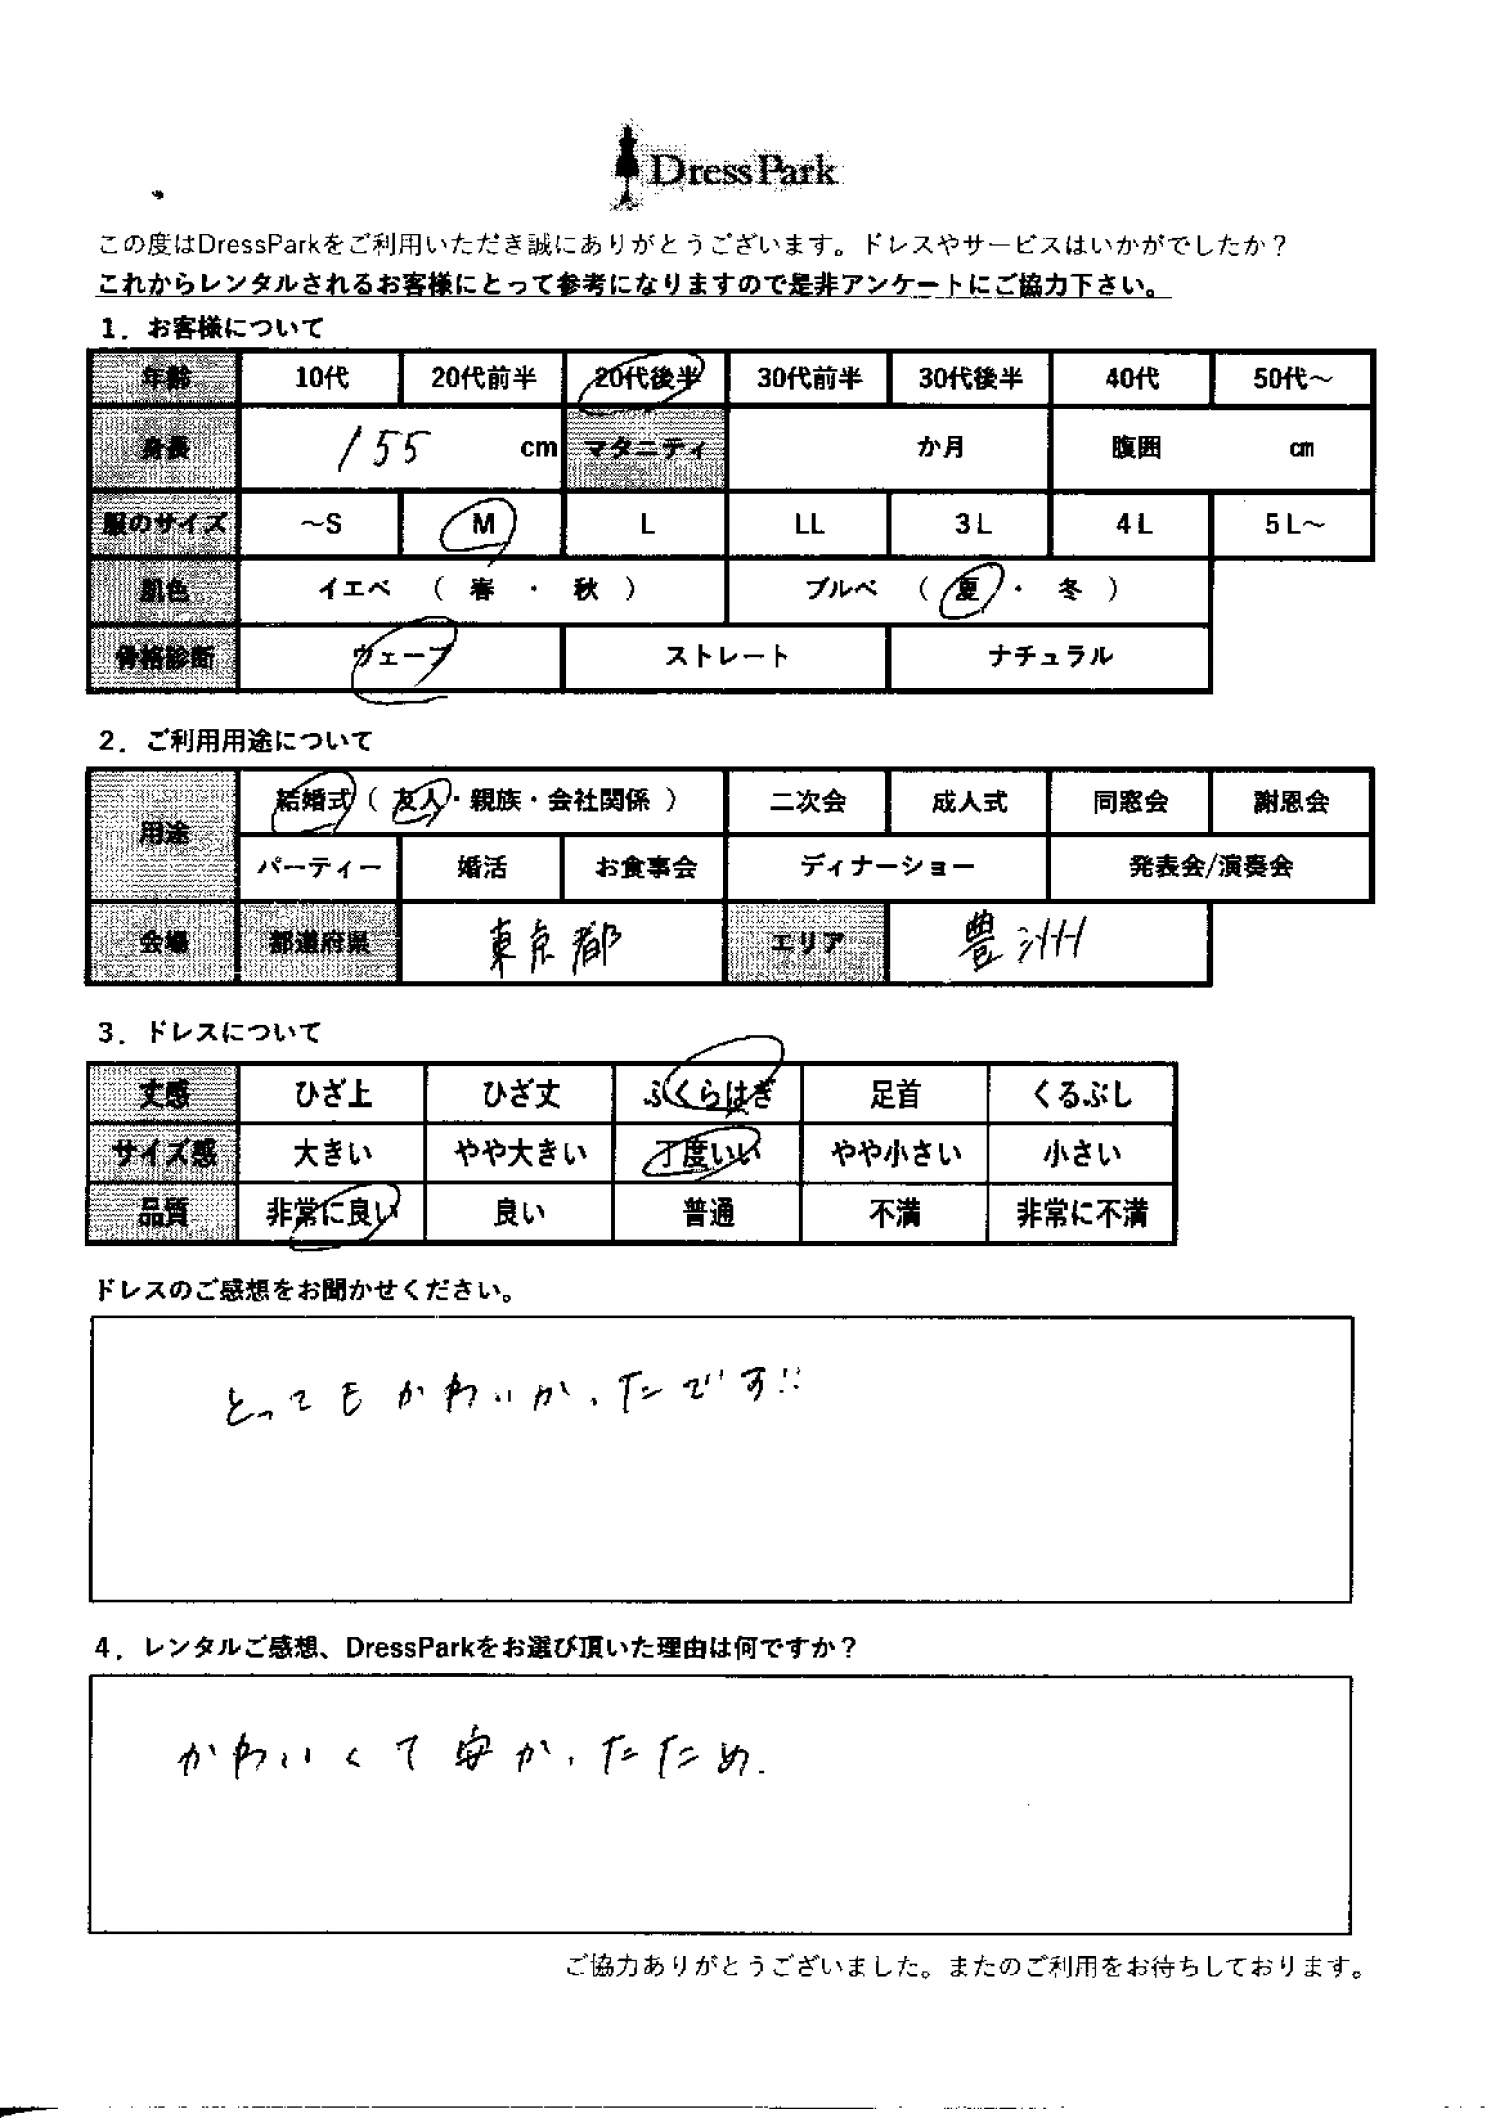 DressPark
この度はDressParkをご利用いただき誠にありがとうございます。ドレスやサービスはいかがでしたか？
これからレンタルされるお客様にとって参考になりますので是非アンケートにご協力下さい。
1．お客様について
年齢 10代 20代前半 20代後半 30代前半 30代後半 40代 50代～
身長 155 cm マタニティ か月 腹囲 ㎝
服のサイズ ～S M L LL 3L 4L 5L～
肌色 イエベ （ 春 ・ 秋 ） ブルベ （ 夏 ・ 冬 ）
骨格診断 ウェーブ ストレート ナチュラル
2．ご利用用途について
用途 結婚式（ 友人・親族・会社関係 ） 二次会 成人式 同窓会 謝恩会
パーティー 婚活 お食事会 ディナーショー 発表会/演奏会
会場 都道府県 東京都 エリア 豊洲
3．ドレスについて
丈感 ひざ上 ひざ丈 ふくらはぎ 足首 くるぶし
サイズ感 大きい やや大きい 丁度いい やや小さい 小さい
品質 非常に良い 良い 普通 不満 非常に不満
ドレスのご感想をお聞かせください。
とってもかわいかったです!!
4．レンタルご感想、DressParkをお選び頂いた理由は何ですか？
かわいくて安かったため.
ご協力ありがとうございました。またのご利用をお待ちしております。